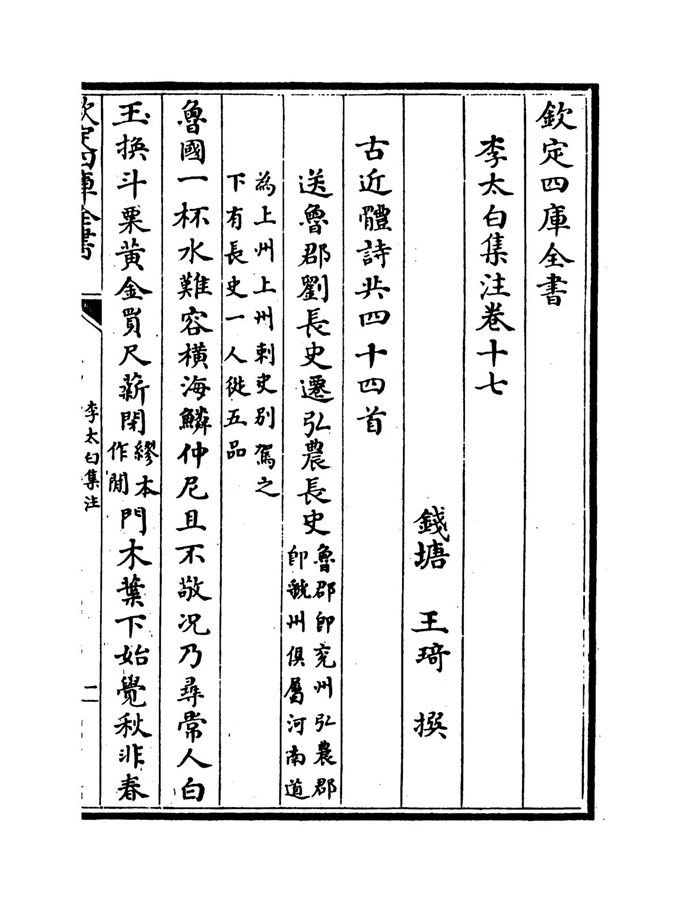 欽定四庫全書
李太白集注卷十七
錢塘 王琦 撰
古近體詩共四十四首
送魯郡劉長史遷弘農長史
魯郡即兖州弘農郡
即虢州俱屬河南道
為上州上州刺史别駕之
下有長史一人從五品
魯國一杯水難容橫海鱗仲尼且不敬况乃尋常人白
玉換斗粟黄金買尺薪閉
繆本
作閒
門木葉下始覺秋非春
欽定四庫全書
李太白集注
二